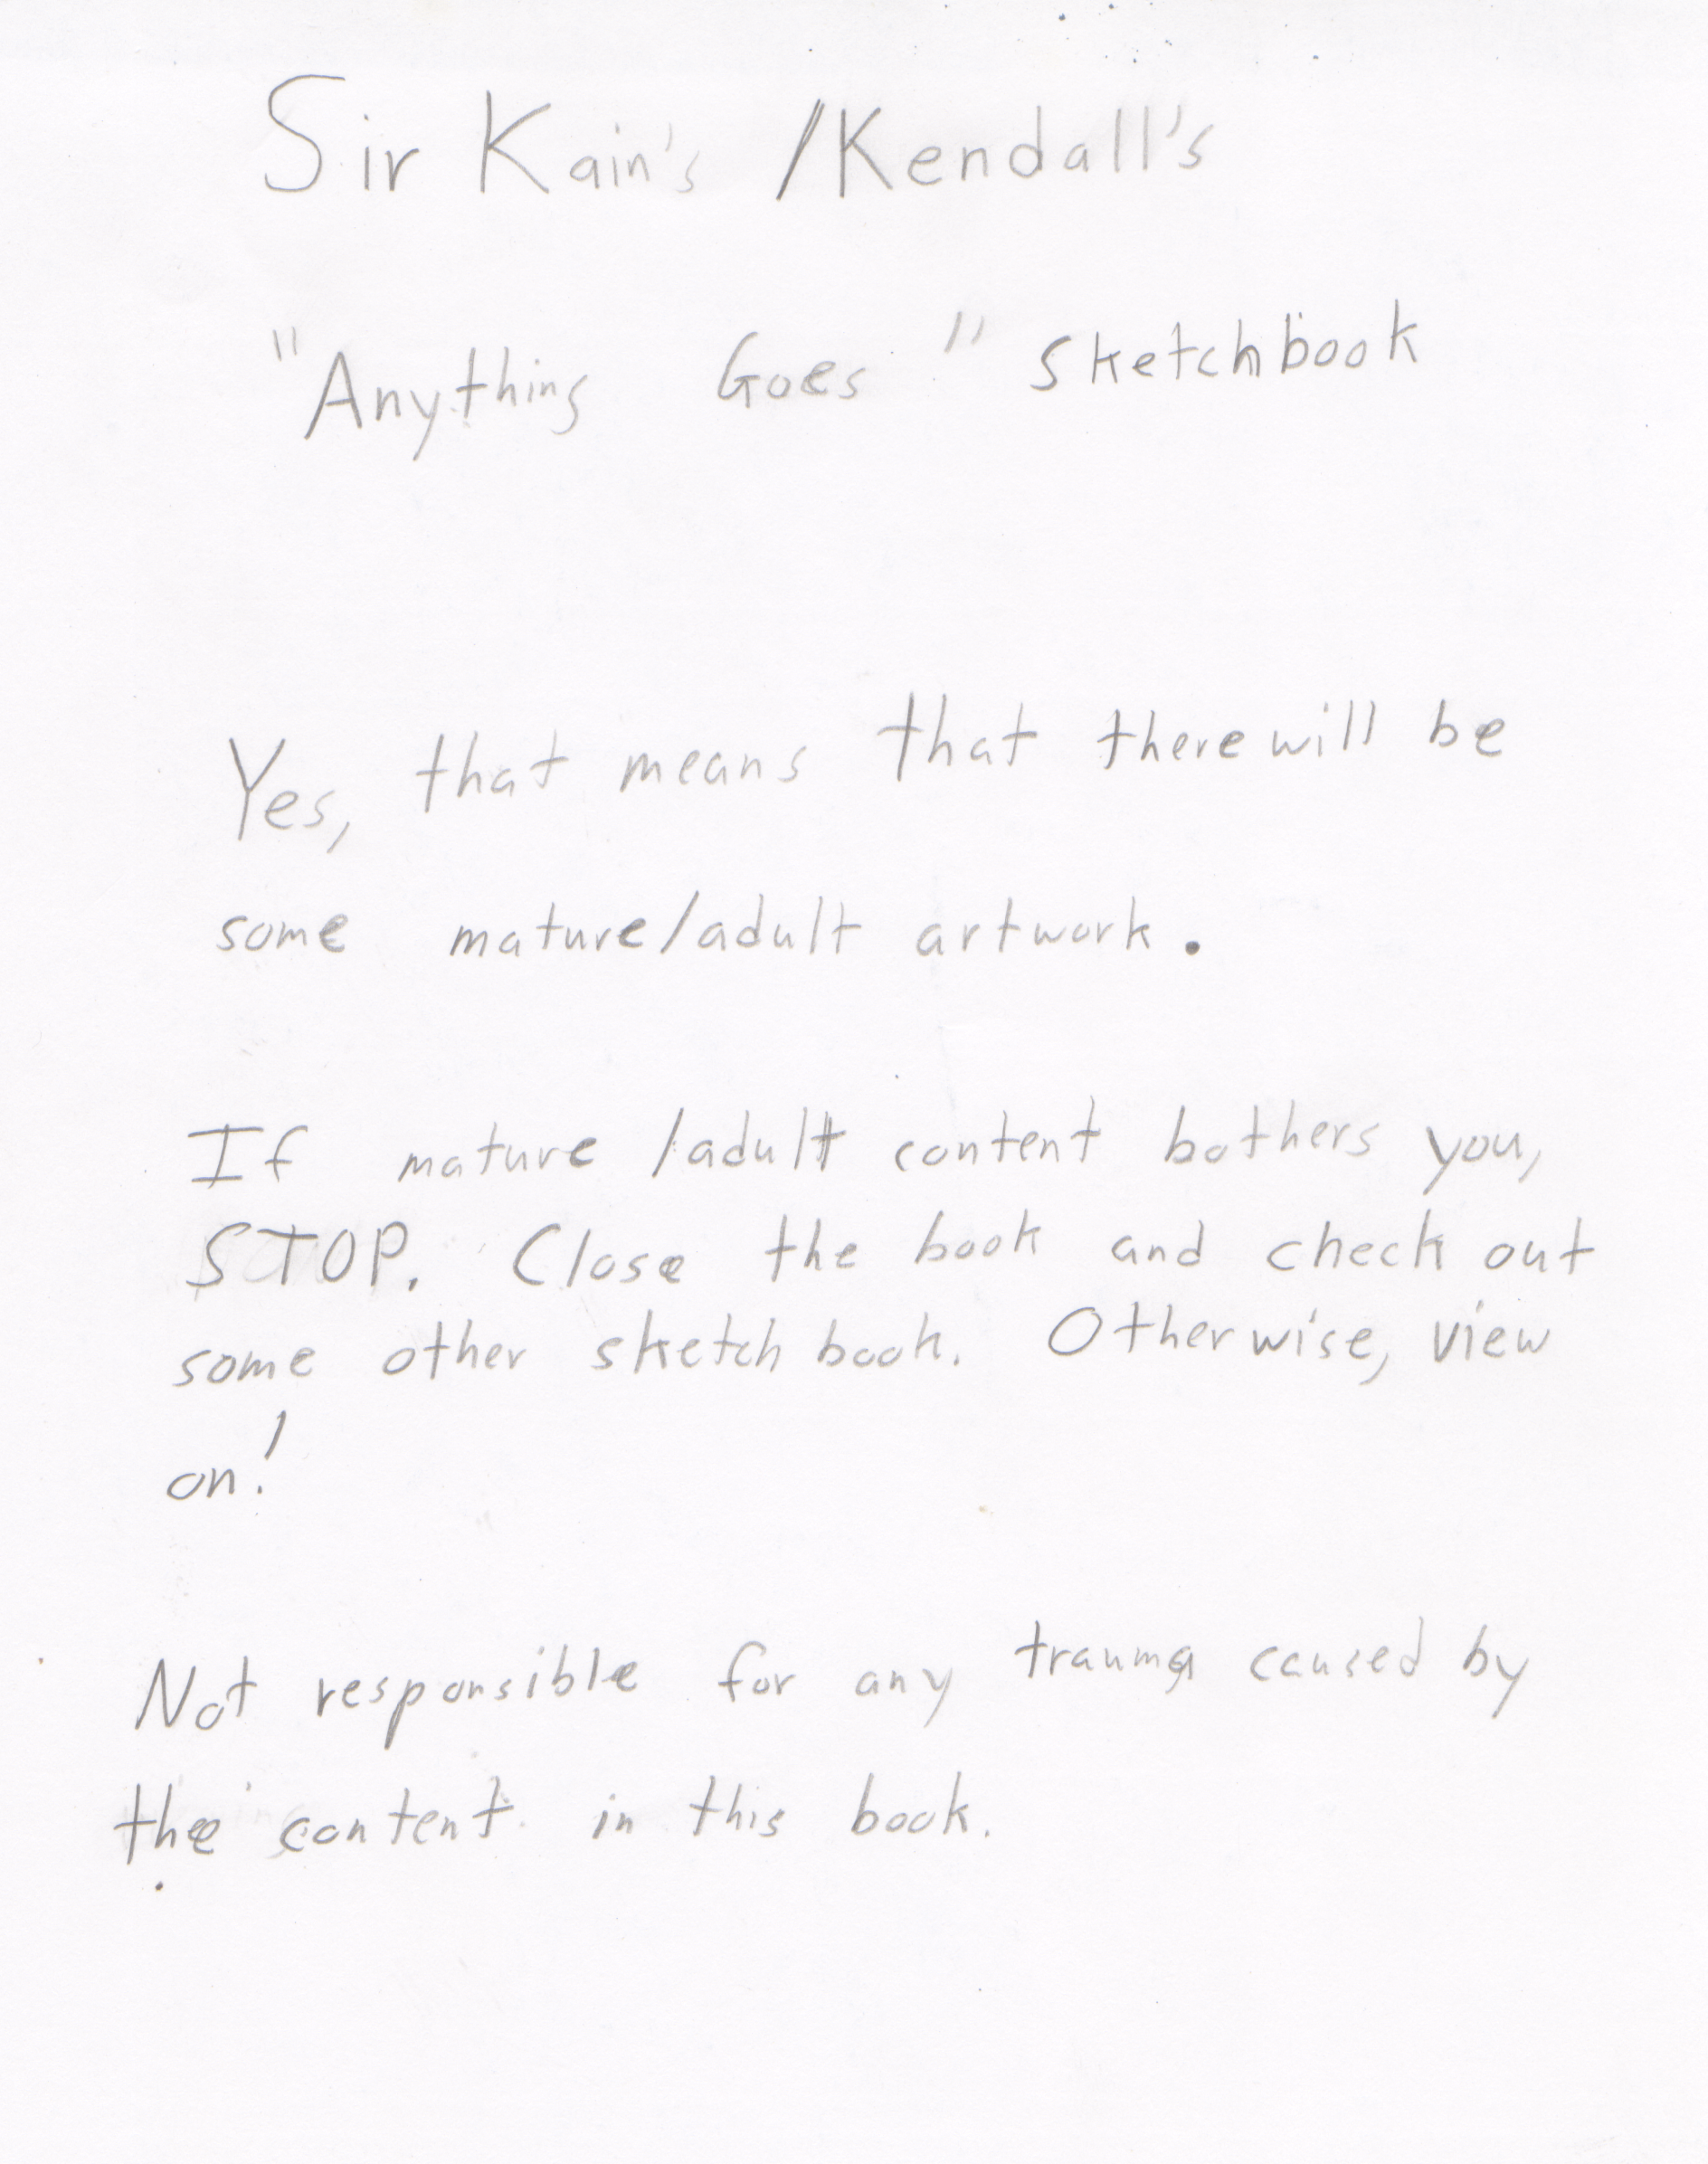 Sir Kain's /Kendall's
"Anything Goes" sketchbook
Yes, that means that there will be
some mature/adult artwork.
If mature /adult content bothers you,
STOP. Close the book and check out
some other sketchbook. Otherwise, view
on!
Not responsible for any trauma caused by
the content in this book.